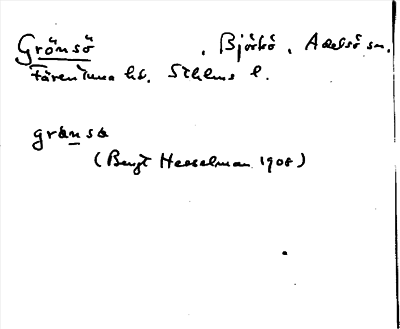 Grönsö , Björkö , Adelsö sn.
Färentuna hd. Sthlms l.
grønsø
(Bengt Hesselman 1908)